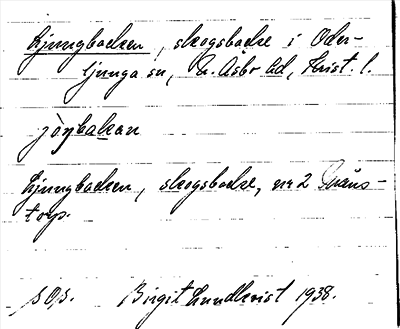 Ljungbacken, skogsbacke i Oder-
ljunga sn, N. Åsbo hd, Krist. l.
jöŋbakan
Ljungbacken, skogsbacke, nr 2 Gräns-
torp.
s Ops. Birgit Lundkvist 1938.